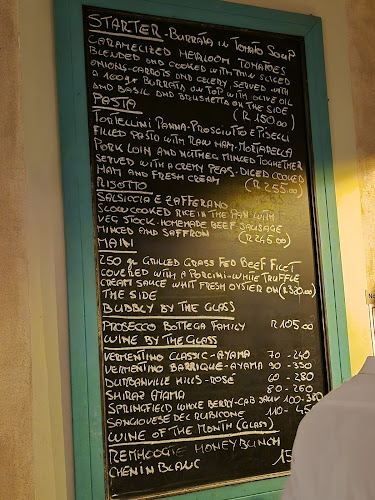 STARTER-BURRATA IN TOMATO SOUP
CARAMELIZED HEIRLOOM TOMATOES
BLENDED AND COOKED WITH THIN SLICED
ONIONS-CARROTS AND CELERY, SERVED WITH
A 100gr BURRATA ON TOP WITH OLIVE OIL
AND BASIL AND BRUSHETTA ON THE SIDE
(R 150.00)
PASTA
TORTELLINI PANNA-PROSCIUTTO E PISELLI
FILLED PASTA WITH RAW HAM-MORTADELLA
PORK LOIN AND NUTMEG MINCED TOGHETHER
SERVED WITH A CREMY PEAS-DICED COOKED
HAM AND FRESH CREAM
(R 255.00)
RISOTTO
SALSICCIA E ZAFFERANO
SLOW COOKED RICE IN THE PAN WITH
VEG STOCK-HOMEMADE BEEF SAUSAGE
MINCED AND SAFFRON (R 245.00)
MAIN
250 gr GRILLED GRASS FED BEEF FILET
COVERED WITH A PORCINI-WHITE TRUFFLE
CREAM SAUCE WHIT FRESH OYSTER ON (R 320.00)
THE SIDE
BUBBLY BY THE GLASS
PROSECCO BOTTEGA FAMILY R 105.00
WINE BY THE GLASS
VERMENTINO CLASSIC-AYAMA 70-240
VERMENTINO BARRIQUE-AYAMA 90-330
DURBANVILLE HILLS-ROSÉ 60-280
SHIRAZ AYAMA 80-260
SPRINGFIELD WHOLE BERRY-CAB SAUV 100-380
SANGIOVESE DEL RUBICONE 110-4
WINE OF THE MONTH (GLASS)
REMHOOGTE HONEYBUNCH
CHENIN BLANC 15